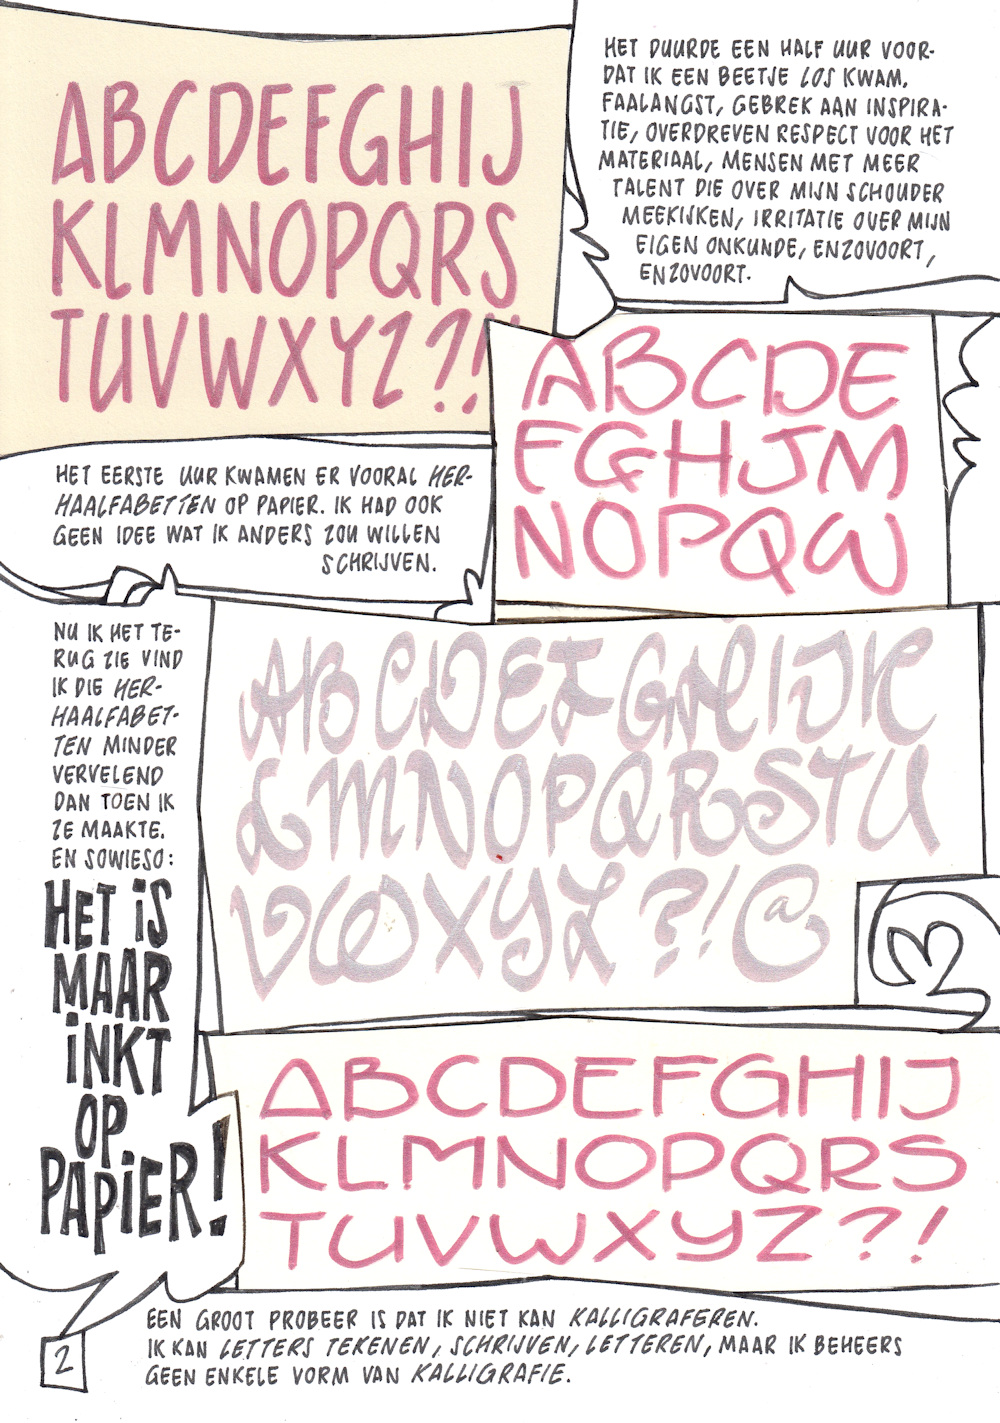 ABCDEFGHIJ
KLMNOPQRS
TUVWXYZ?!
HET DUURDE EEN HALF UUR VOOR-
DAT IK EEN BEETJE LOS KWAM.
FAALANGST, GEBREK AAN INSPIRA-
TIE, OVERDREVEN RESPECT VOOR HET
MATERIAAL, MENSEN MET MEER
TALENT DIE OVER MIJN SCHOUDER
MEEKIJKEN, IRRITATIE OVER MIJN
EIGEN ONKUNDE, ENZOVOORT,
ENZOVOORT.
ABCDE
FGHJM
NOPQW
HET EERSTE UUR KWAMEN ER VOORAL HER-
HAALFABETTEN OP PAPIER. IK HAD OOK
GEEN IDEE WAT IK ANDERS ZOU WILLEN
SCHRIJVEN.
NU IK HET TE-
RUG ZIE VIND
IK DIE HER-
HAALFABET-
TEN MINDER
VERVELEND
DAN TOEN IK
ZE MAAKTE.
EN SOWIESO:
HET iS
MAAR
iNKT
OP
PAPiER!
ABCDEFGHIJK
LMNOPQRSTU
VWXYZ?!@
3
ABCDEFGHIJ
KLMNOPQRS
TUVWXYZ?!
EEN GROOT PROBEER IS DAT IK NIET KAN KALLIGRAFEREN.
IK KAN LETTERS TEKENEN, SCHRIJVEN, LETTEREN, MAAR IK BEHEERS
GEEN ENKELE VORM VAN KALLIGRAFIE.
2